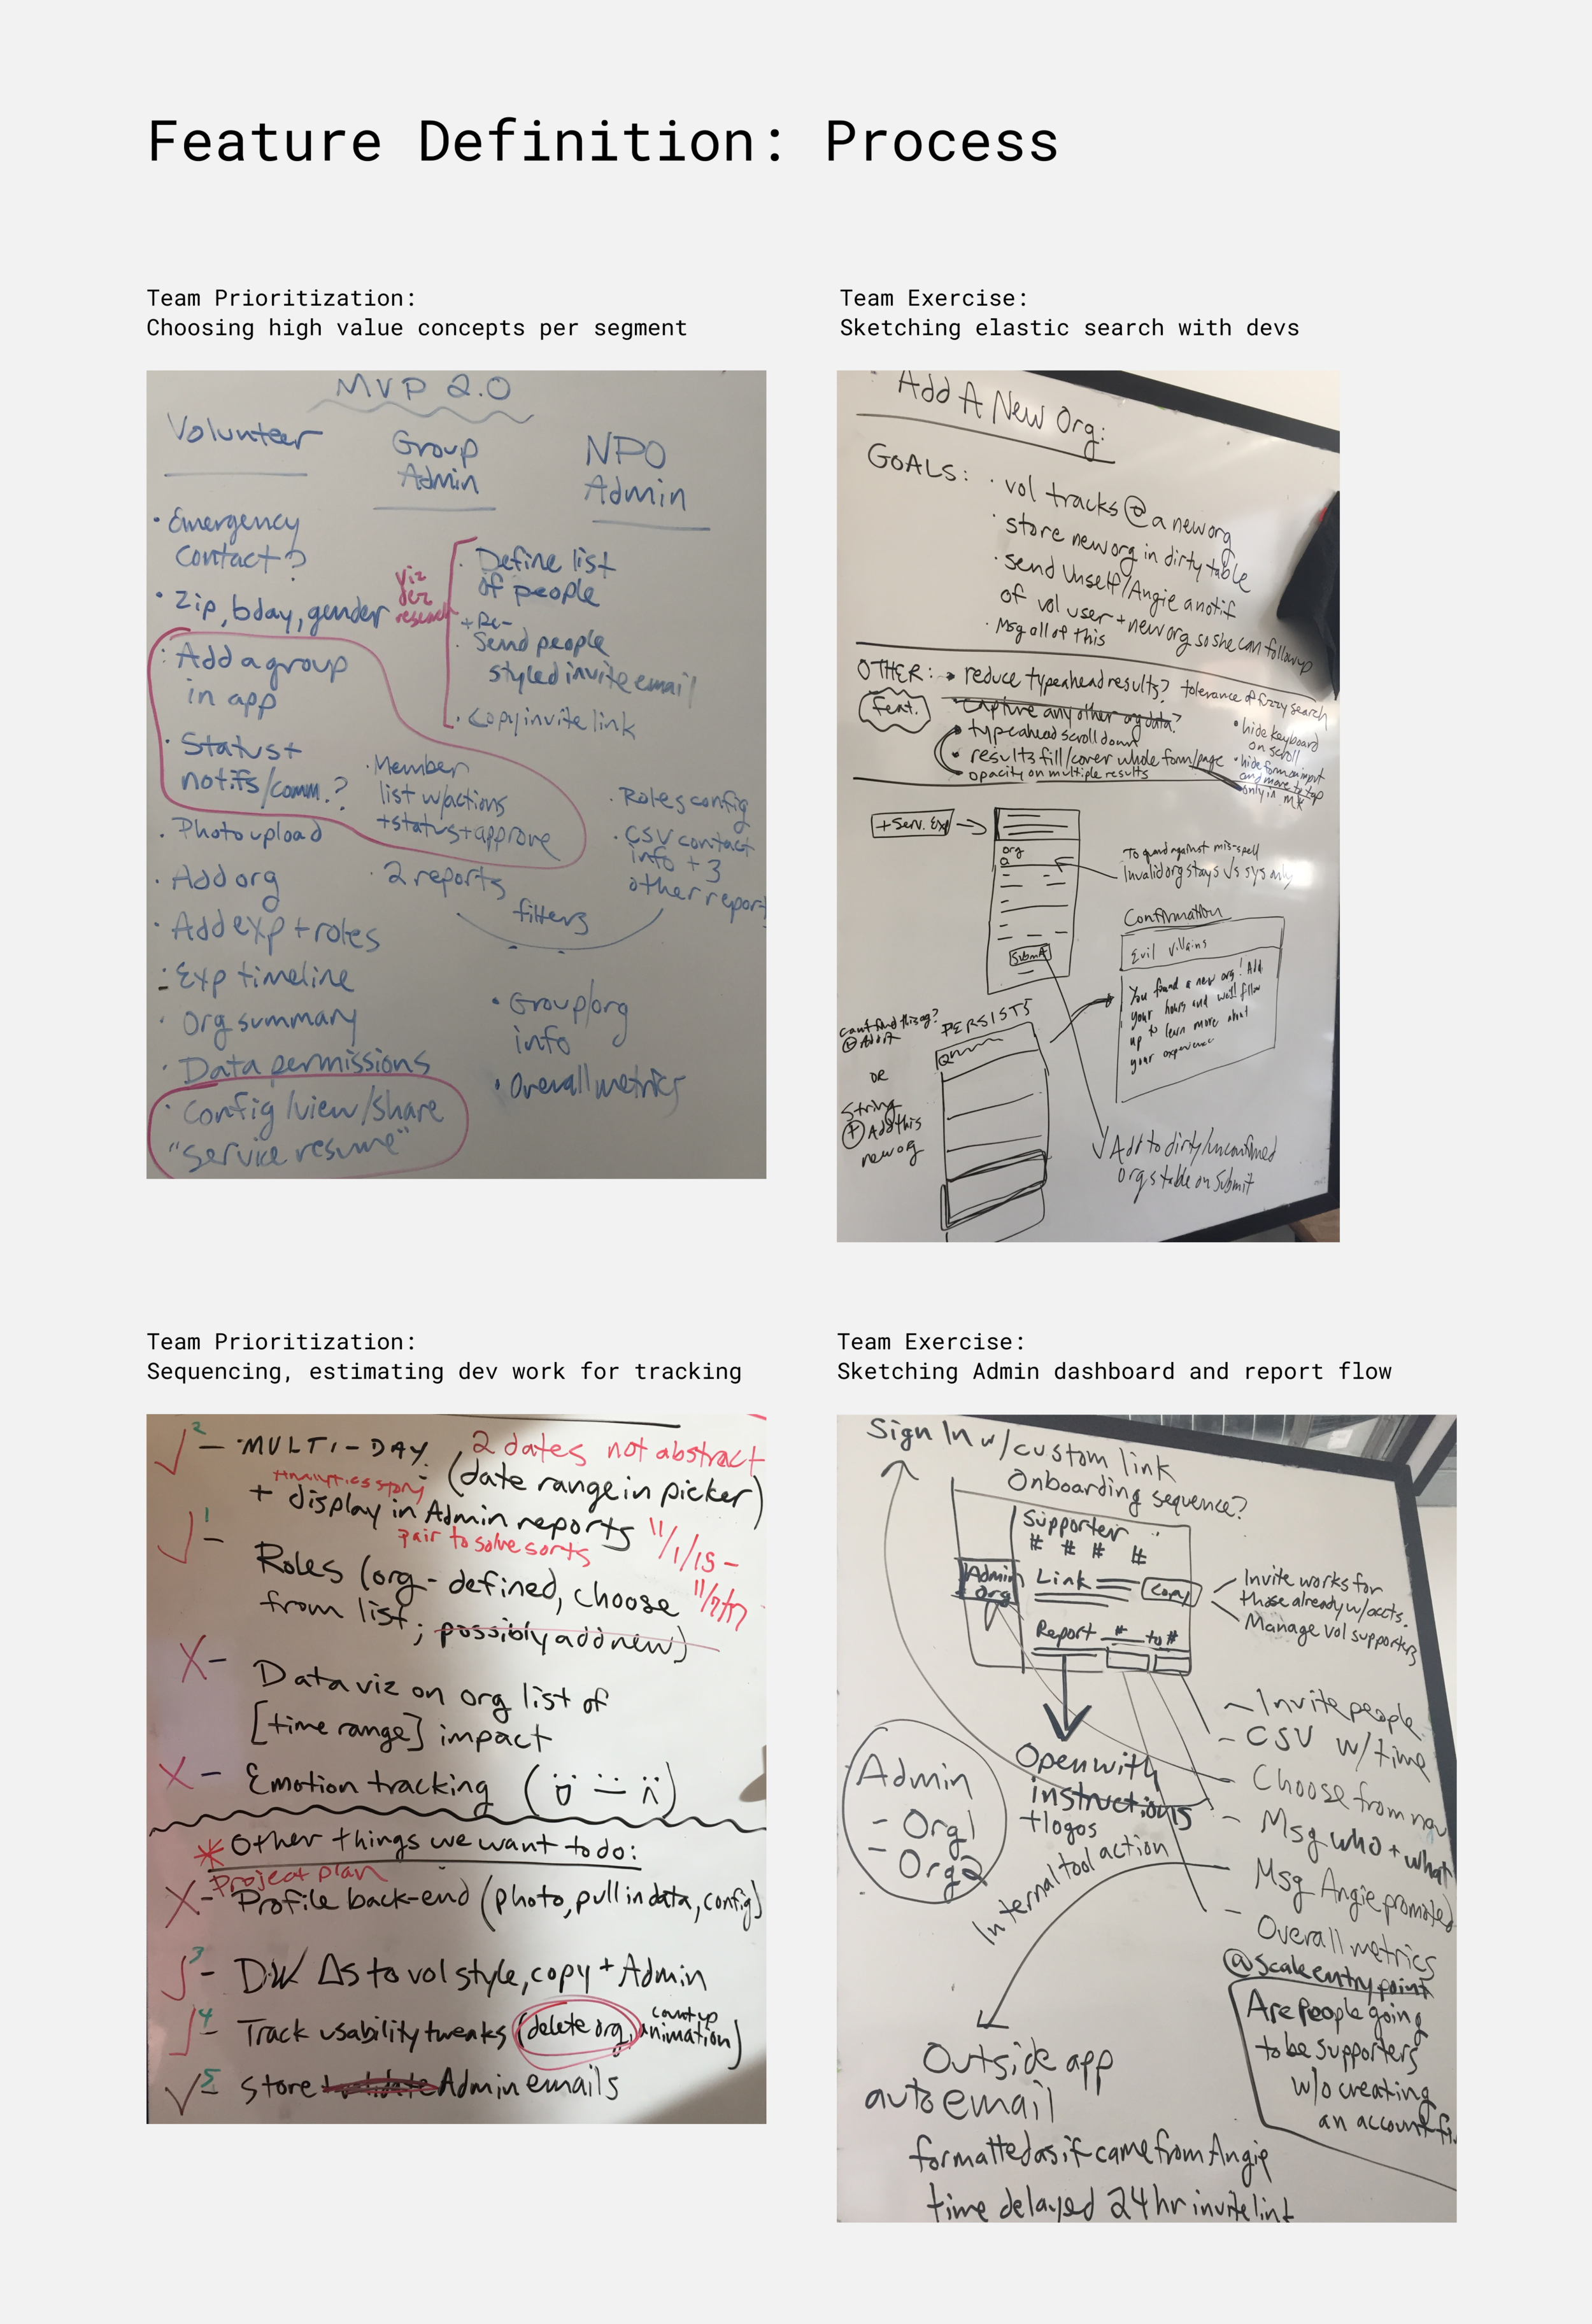 Feature Definition: Process
Team Prioritization:
Choosing high value concepts per segment
MVP 2.0
Volunteer
• Emergency
Contact?
• Zip, bday, gender
• Add a group
in app
• Status +
notifs/comm.?
• Photo upload
• Add org
• Add exp + roles
• Exp timeline
• Org summary
• Data permissions
• Config/view/share
"service resume"
Group
Admin
NPO
Admin
viz
des
research
• Define list
of people
+ Re-
• Send people
styled invite email
• Copy invite link
• Member
list w/actions
+ status + approve
• 2 reports
filters
• Roles config
• CSV contact
info + 3
other report
• Group/org
info
• Overall metrics
Team Exercise:
Sketching elastic search with devs
Add A New Org:
GOALS:
• vol tracks @ a new org
• store new org in dirty table
• send Unself/Angie a notif
of vol user + new org so she can follow up
• Msg all of this
OTHER:
Feat.
→ reduce typeahead results? tolerance of fuzzy search
• Capture any other org data?
• typeahead scroll down
• results fill/cover whole form/page
opacity on multiple results
• hide keyboard
on scroll
• hide form on input
and move to top
only in MR
+ Serv. Exp
org
Submit
To guard against mis-spell
Invalid org stays
Confirmation
Evil Villains
You found a new org! Add
your hours and we'll follow
up to learn more about
your experience
can't find this org?
+ Add it
OR
String
+ Add this
new org
PERSISTS
Add to dirty/unconfirmed
Orgs table on Submit
Team Prioritization:
Sequencing, estimating dev work for tracking
2
- MULTI-DAY
2 dates not abstract
(date range in picker)
Analytics story
+ display in Admin reports
pair to solve sorts
11/1/15 -
11/7/17
1
- Roles (org-defined, choose
from list; possibly add new)
X - Data viz on org list of
[time range] impact
X - Emotion tracking
* Other things we want to do:
Project plan
X - Profile back-end (photo, pull in data, config)
3
- DW Δs to vol style, copy + Admin
4
- Track usability tweaks (delete org, count up
animation)
5
- Store validate Admin emails
Team Exercise:
Sketching Admin dashboard and report flow
Sign In w/custom link
Onboarding sequence?
Supporter
# # # #
Admin
Org
Link
Copy
Report # to #
Invite works for
those already w/accts.
Manage vol supporters
Open with
instructions
+ logos
Admin
- Org1
- Org2
Internal tool action
- Invite people
- CSV w/time
- Choose from nav
- Msg who + what
- Msg Angie promoted
- Overall metrics
@scale entry point
Are people going
to be supporters
w/o creating
an account
Outside app
auto email
formatted as if came from Angie
time delayed 24 hr invite link